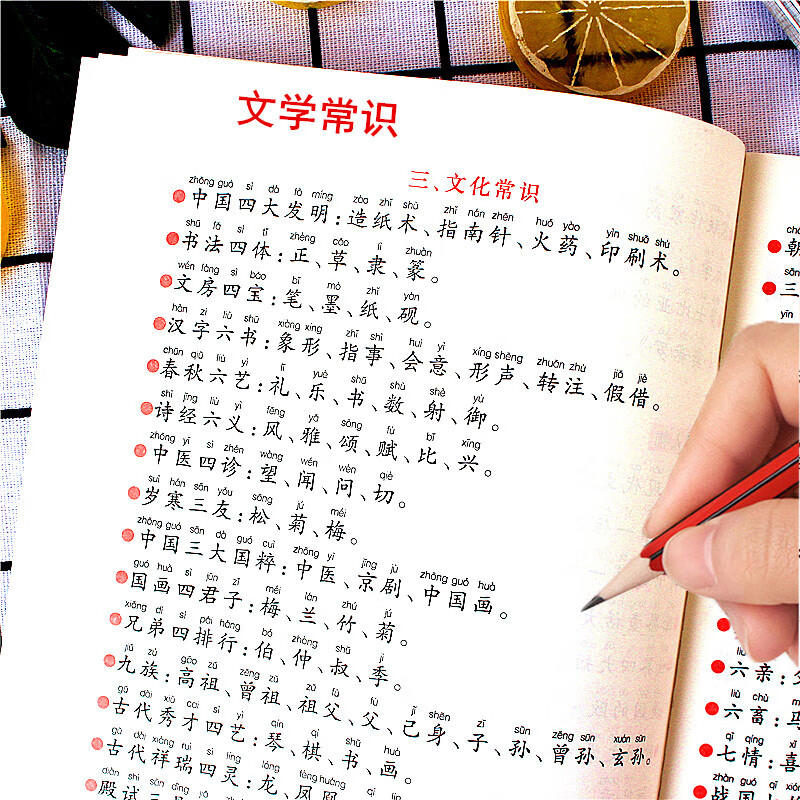 文学常识
三、文化常识
zhōng guó sì dà fā míng zào zhǐ shù zhǐ nán zhēn huǒ yào yìn shuā shù
中国四大发明：造纸术、指南针、火药、印刷术。
shū fǎ sì tǐ zhèng cǎo lì zhuàn
书法四体：正、草、隶、篆。
wén fáng sì bǎo bǐ mò zhǐ yàn
文房四宝：笔、墨、纸、砚。
hàn zì liù shū xiàng xíng zhǐ shì huì yì xíng shēng zhuǎn zhù jiǎ jiè
汉字六书：象形、指事、会意、形声、转注、假借。
chūn qiū liù yì lǐ yuè shū shù shè yù
春秋六艺：礼、乐、书、数、射、御。
shī jīng liù yì fēng yǎ sòng fù bǐ xīng
诗经六义：风、雅、颂、赋、比、兴。
zhōng yī sì zhěn wàng wén wèn qiè
中医四诊：望、闻、问、切。
suì hán sān yǒu sōng jú méi
岁寒三友：松、菊、梅。
zhōng guó sān dà guó cuì zhōng yī jīng jù zhōng guó huà
中国三大国粹：中医、京剧、中国画。
guó huà sì jūn zǐ méi lán zhú jú
国画四君子：梅、兰、竹、菊。
xiōng dì sì pái háng bó zhòng shū jì
兄弟四排行：伯、仲、叔、季。
jiǔ zú gāo zǔ zēng zǔ zǔ fù fù jǐ shēn zǐ sūn zēng sūn xuán sūn
九族：高祖、曾祖、祖父、父、己身、子、孙、曾孙、玄孙。
gǔ dài xiù cai sì yì qín qí shū huà
古代秀才四艺：琴、棋、书、画。
gǔ dài xiáng ruì sì líng lóng fèng huáng
古代祥瑞四灵：龙、凤凰
diàn shì sān
殿试三
朝
sān
三
六亲：
liù chù
六畜：马
qī qíng xǐ
七情：喜
zhàn guó qī
战国七